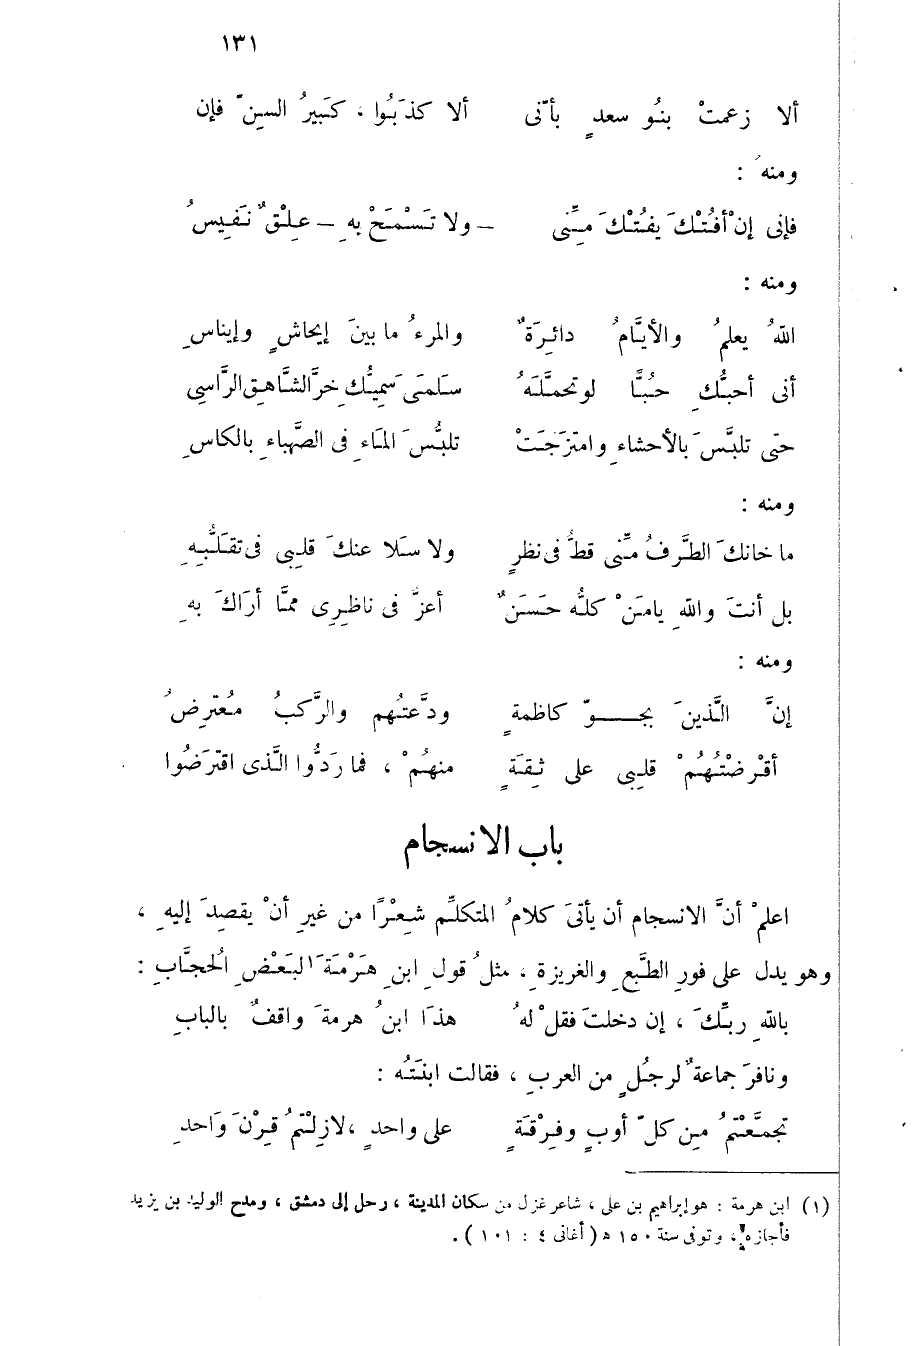 ١٣١
ألا زعمتْ بنُو سعدٍ بأنّى ألا كذَبُوا ، كَبيرُ السِنّ فإن
ومنهُ :
فإنى إنْ أفُتْكَ يفُتْكَ مِنِّى – ولا تَسْمَحْ بهِ – عِلْقٌ نَفيسُ
ومنه :
اللهُ يعلمُ والأيَّامُ دائِرَةٌ والمرءُ ما بينَ إيحاشٍ وإيناسِ
أنى أحبُّكِ حُبًّا لو تحمَّلَهُ سَلمَى سَمِيُّكِ خرَّ الشَّاهِق الرَّاسِى
حتى تلبَّسَ بالأحشاءِ وامتزَجَتْ تلبُّسَ المَاءِ فى الصَّهباءِ بالكاسِ
ومنه :
ما خانكَ الطَّرفُ مِنِّى قطُّ فى نظرٍ ولا سَلا عنكَ قلبِى فى تقَلُّبِهِ
بل أنتَ واللهِ يامَنْ كلُّه حَسَنٌ أعزَّ فى ناظِرِى ممَّا أرَاكَ بهِ
ومنه :
إنَّ الَّذينَ بجــوّ كاظمةٍ ودَّعتُهم والرَّكبُ مُعْترِضُ
أقْرضْتُهُمْ قلبِى على ثِقَةٍ منهُمْ ، فما رَدُّوا الَّذى اقتَرَضُوا
باب الانسجام
اعلمْ أنَّ الانسجام أن يأتىَ كلامُ المتكلِّم شِعْرًا من غيرِ أنْ يقصِدَ إليهِ ،
وهو يدل على فورِ الطَّبعِ والغريزةِ ، مثلُ قولِ ابنِ هَرْمَةَ ١ لبَعْضِ الحُجَّابِ :
باللهِ ربِّكَ ، إن دخلتَ فقلْ لهُ هذَا ابنُ هرمةَ واقفٌ بالبابِ
ونافرَ جماعةٌ لرجُلٍ من العربِ ، فقالت ابنَتُه :
تجمَّعْتمُ مِن كلّ أوبٍ وفِرْقَةٍ على واحدٍ ، لازِلْتمُ قِرْنَ وَاحدِ
(١) ابن هرمة : هو إبراهيم بن على ، شاعر غزل من سكان المدينة ، رحل إلى دمشق ، ومدح الوليد بن يزيد
فأجازه ، وتوفى سنة ١٥٠ ه ( أغانى ٤ : ١٠١ ) .